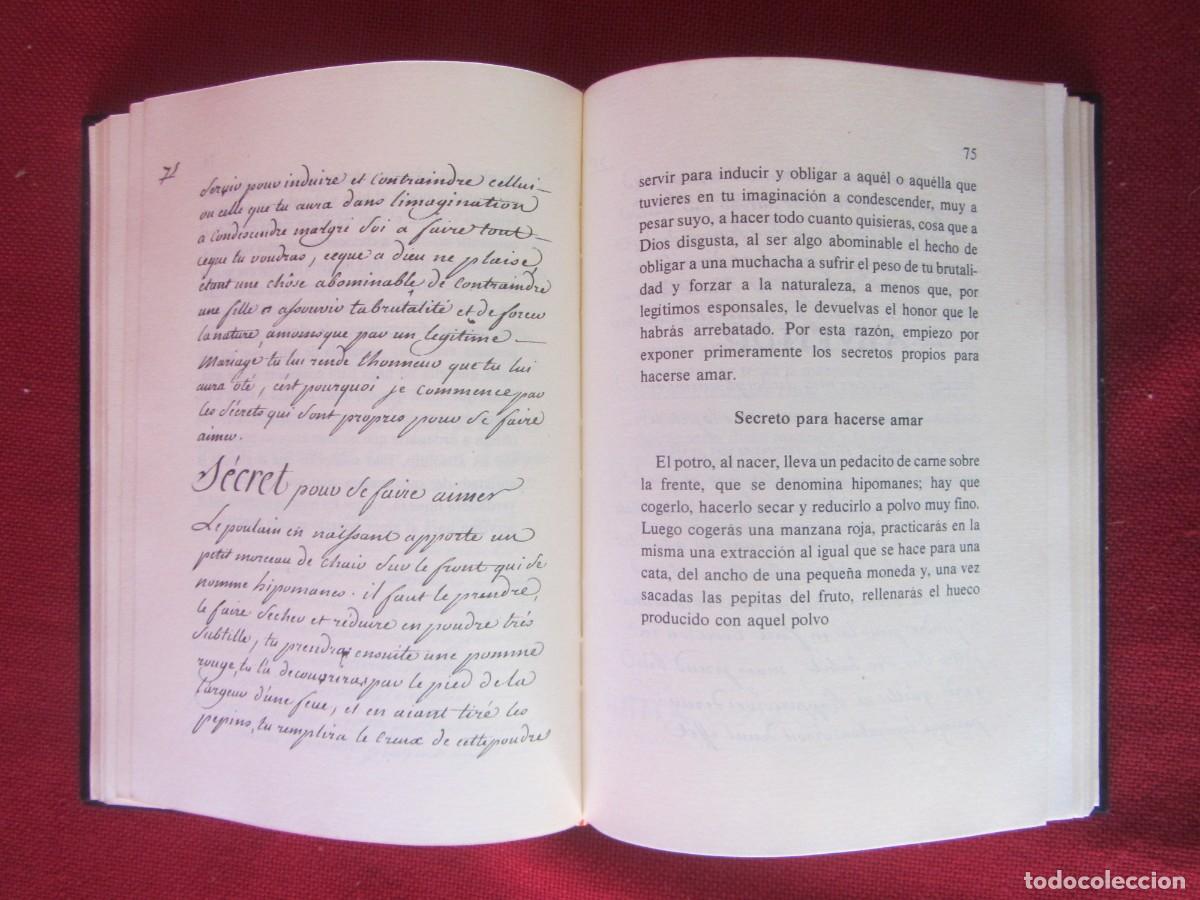 71
servir pour induire et contraindre cellui
ou celle que tu aura dans l'imagination
a condescendre malgré soi a faire tout
ceque tu voudras, ceque a dieu ne plaise,
étant une chôse abominable de contraindre
une fille a assouvir ta brutalité et de forcer
la nature, amoinsque par un legitime
Mariage tu lui rende l'honneur que tu lui
aura ôté, c'est pourquoi je commence par
les Sécrets qui sont propres pour se faire
aimer.
Sécret pour se faire aimer
Le poulain en naissant apporte un
petit morceau de chair sur le front qui se
nomme hipomanes. il faut le prendre,
le faire secher et réduire en poudre trés
subtille, tu prendras ensuite une pomme
rouge, tu la decouvriras par le pied de la
largeur d'une feue, et en aiant tiré les
pepins, tu remplira le creux de cette poudre
75
servir para inducir y obligar a aquél o aquélla que
tuvieres en tu imaginación a condescender, muy a
pesar suyo, a hacer todo cuanto quisieras, cosa que a
Dios disgusta, al ser algo abominable el hecho de
obligar a una muchacha a sufrir el peso de tu brutali-
dad y forzar a la naturaleza, a menos que, por
legítimos esponsales, le devuelvas el honor que le
habrás arrebatado. Por esta razón, empiezo por
exponer primeramente los secretos propios para
hacerse amar.
Secreto para hacerse amar
El potro, al nacer, lleva un pedacito de carne sobre
la frente, que se denomina hipomanes; hay que
cogerlo, hacerlo secar y reducirlo a polvo muy fino.
Luego cogerás una manzana roja, practicarás en la
misma una extracción al igual que se hace para una
cata, del ancho de una pequeña moneda y, una vez
sacadas las pepitas del fruto, rellenarás el hueco
producido con aquel polvo
todocoleccion